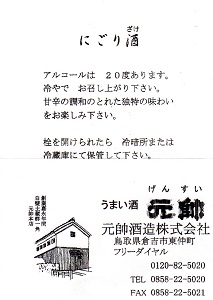 にごり酒
ざけ
アルコールは　２０度あります。
冷やで　お召し上がり下さい。
甘辛の調和のとれた独特の味わい
をお楽しみ下さい。
栓を開けられたら　冷暗所または
冷蔵庫にて保管して下さい。
げんすい
うまい酒　元帥
元帥酒造株式会社
鳥取県倉吉市東仲町
フリーダイヤル
0120-82-5020
TEL 0858-22-5020
FAX 0858-22-5021
創業嘉永年間
白壁土蔵群一角
元帥本店